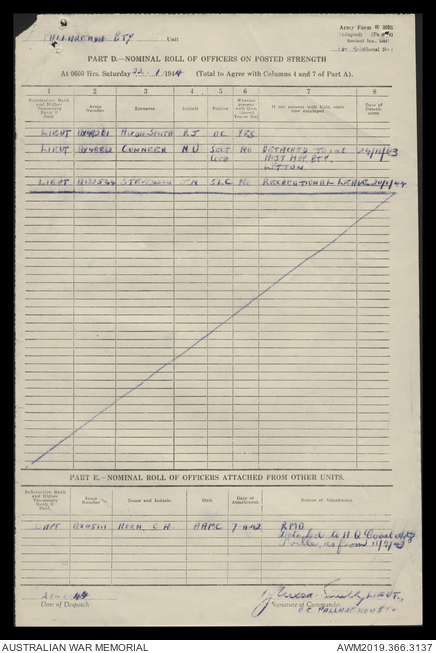 Army Form W 3008
(Adapted)
PALLARENDA BTY Unit
PART D.—NOMINAL ROLL OF OFFICERS ON POSTED STRENGTH
At 0600 Hrs. Saturday 22 / 1 /1944 (Total to Agree with Columns 4 and 7 of Part A).
1 2 3 4 5 6 7 8
Substantive Rank and Higher Temporary Rank if Held
Army Number
Surname
Initials
Posting
Whether present with Unit (Insert Yes or No)
If not present with Unit, state how employed
Date of Detachment
LIEUT HIXON SMITH R J OC YES
LIEUT N U SECT NO DETACHED TO 101 24/11/43
COMD HVST ANY BTY.
LYTTON.
LIEUT SLC NO RECREATIONAL LEAVE
PART E.—NOMINAL ROLL OF OFFICERS ATTACHED FROM OTHER UNITS.
Substantive Rank and Higher Temporary Rank if Held
Army Number
Name and Initials.
Unit
Date of Attachment
Nature of Attachment.
CAPT HORN, C.H. AAMC RMO
to H Q
ville, as from 11/9/43
Date of Despatch
LIEUT.,
Signature of Commander
O.C. PALLARENDA BTY
AUSTRALIAN WAR MEMORIAL AWM2019.366.3137